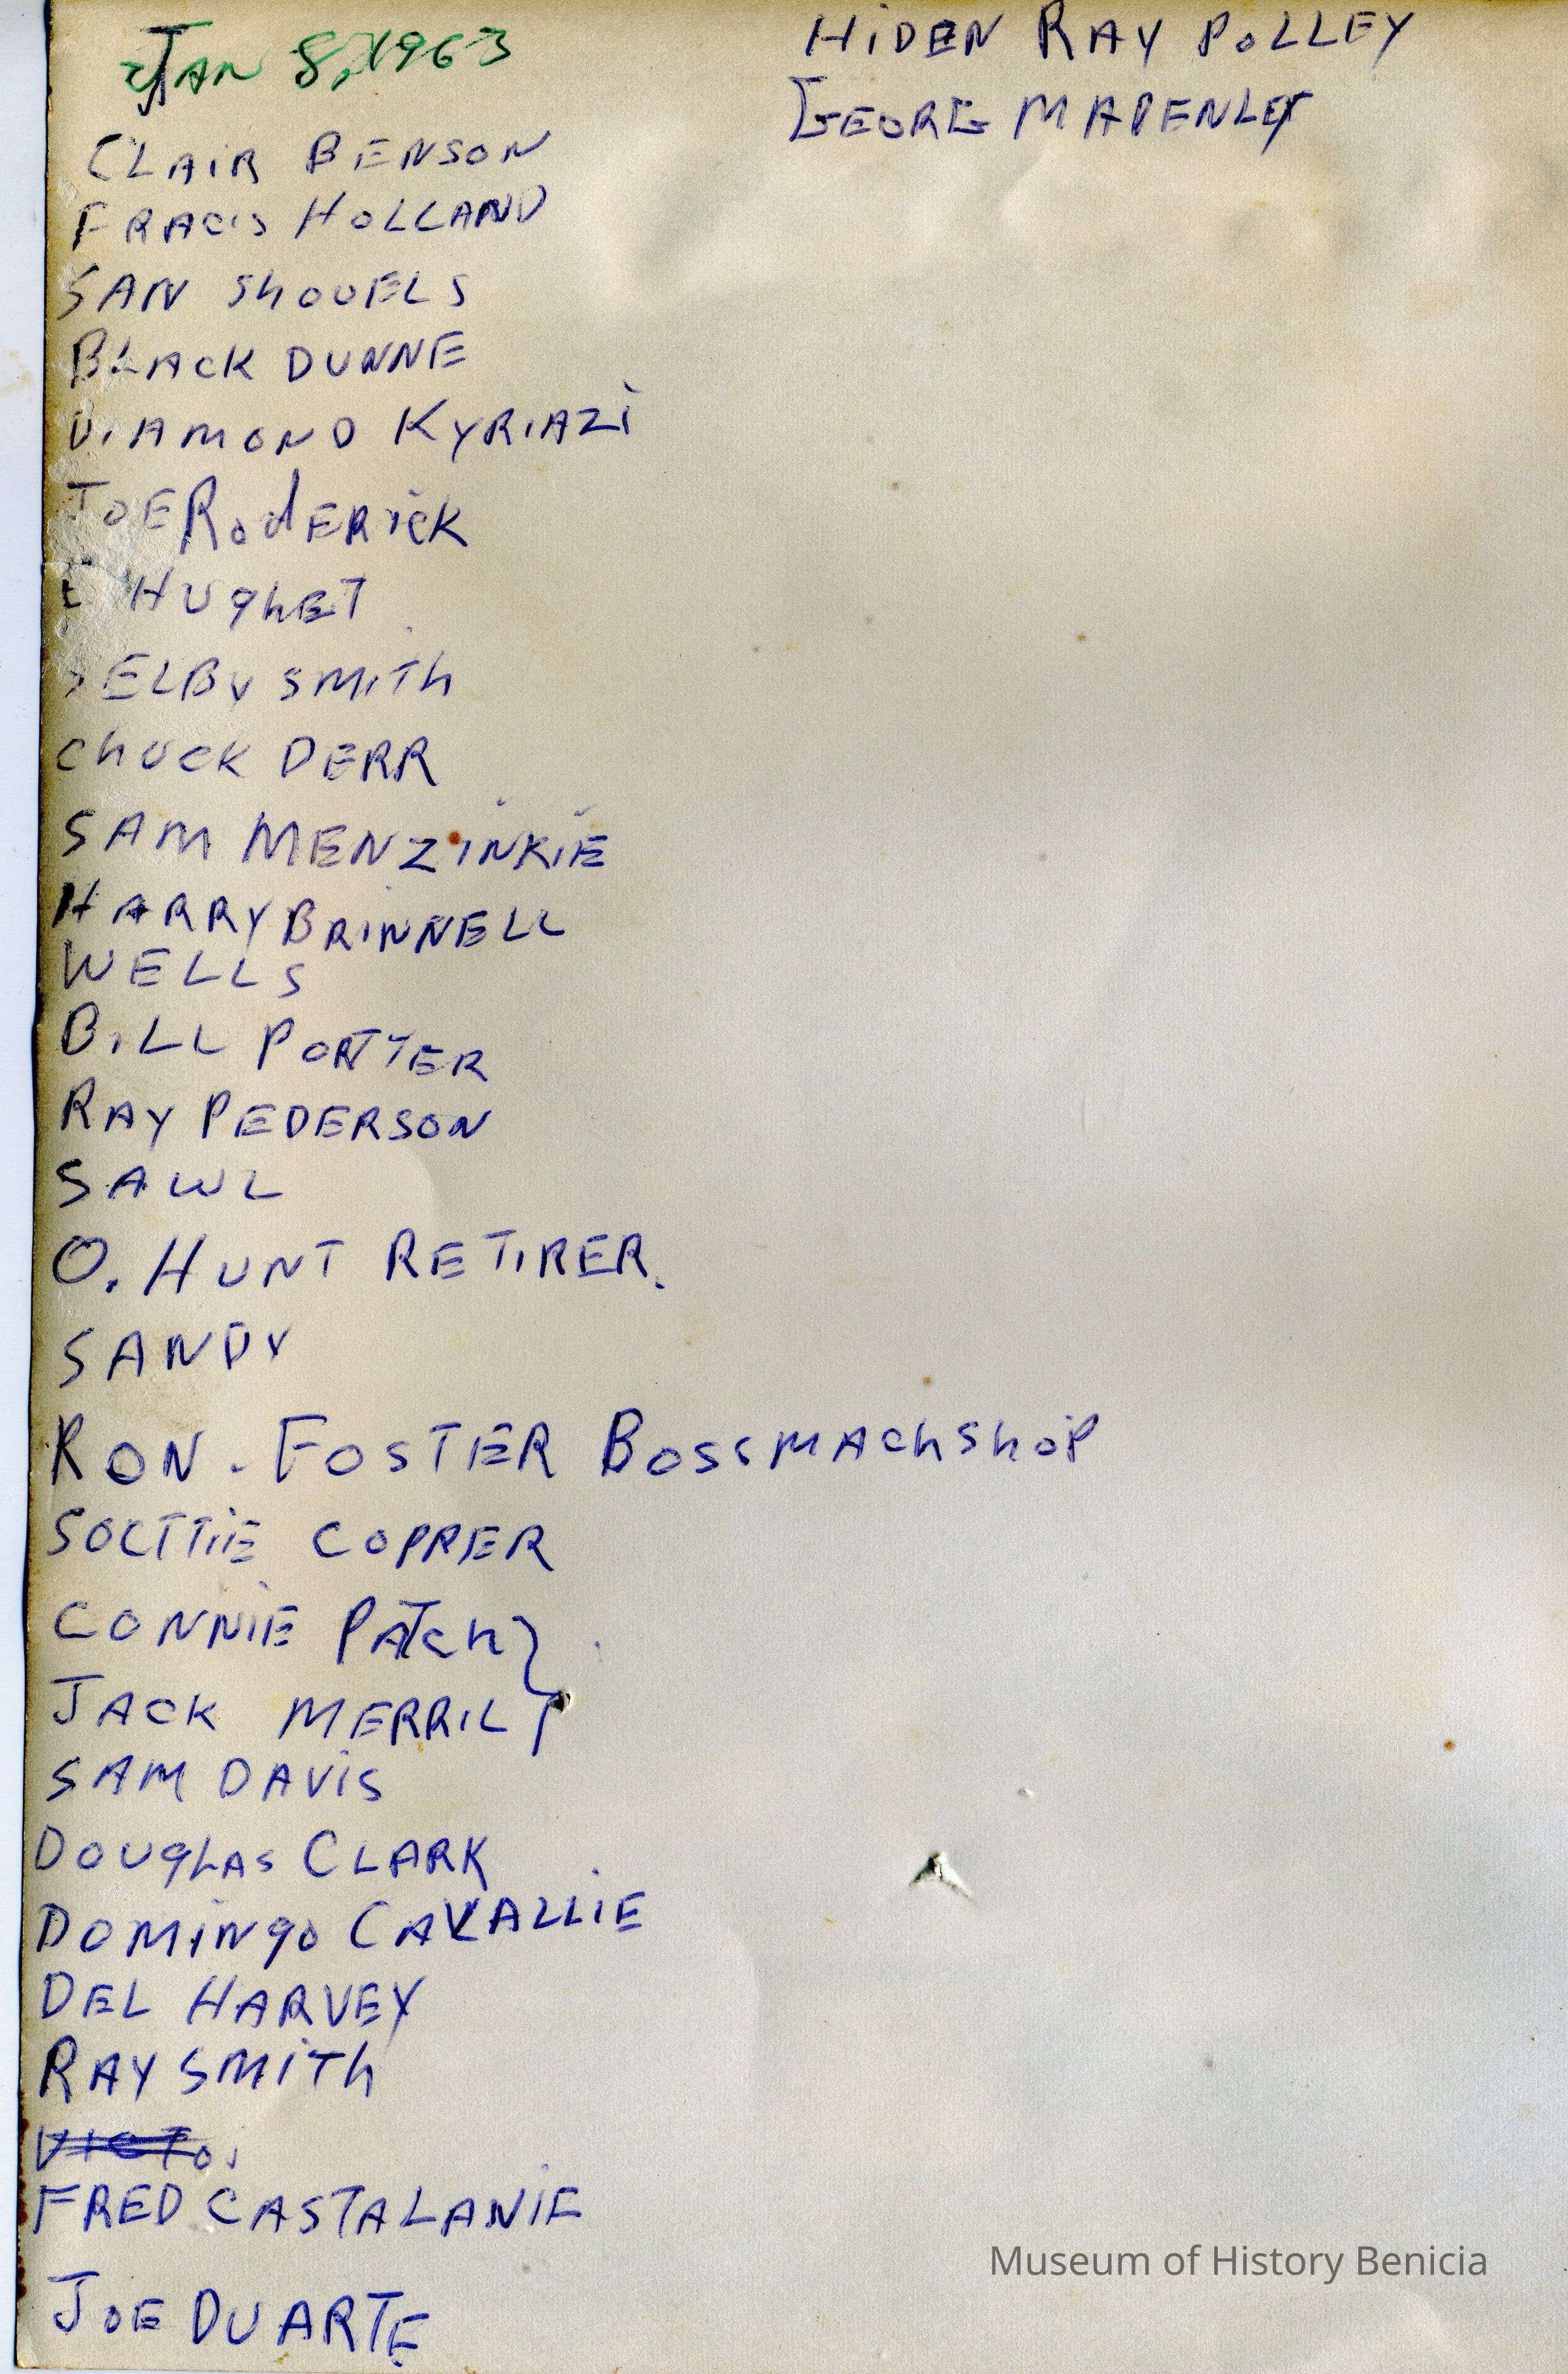 JAN 8, 1963
CLAIR BENSON
FRACIS HOLLAND
SAN ShOUELS
BLACK DUNNE
DIAMOND KYRIAZi
JOE RodERicK
E HUghET
SELBY SMITh
ChUCK DERR
SAM MENZiNKiE
HARRY BRINNELL
WELLS
BiLL PORTTER
RAY PEDERSON
SAWL
O. HUNT RETIRER.
SANDY
RON. FOSTER BOSSMAChShOP
SOCTTiiE COPPER
CONNIE PATCh
JACK MERRIL
SAM DAVIS
DOUgLAS CLARK
DOMiNgO CAVALLIE
DEL HARVEY
RAY SMiTh
FRED CASTALANIE
JOE DUARTE
HiDEN RAY POLLEY
GEORG
Museum of History Benicia